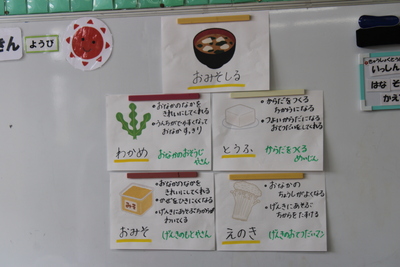 きん
ようび
おみそしる
・おなかのなかを
きれいにしてくれる
・うんちがでやすくなって
おなか すっきり
わかめ
おなかのおそうじ
やさん
・からだをつくる
ちからになる
・つよいからだになる
おてつだいをしてくれる
とうふ
からだをつくる
めいじん
・おなかのなかを
きれいにしてくれる
・かぜをひきにくくなる
・げんきにあそぶちからが
わいてくる
みそ
おみそ
げんきのもとやさん
・おなかの
ちょうしがよくなる
・げんきにあそぶ
ちからをたすける
えのき
げんきのおてつだいマン
いっしん
はな そ
かえ